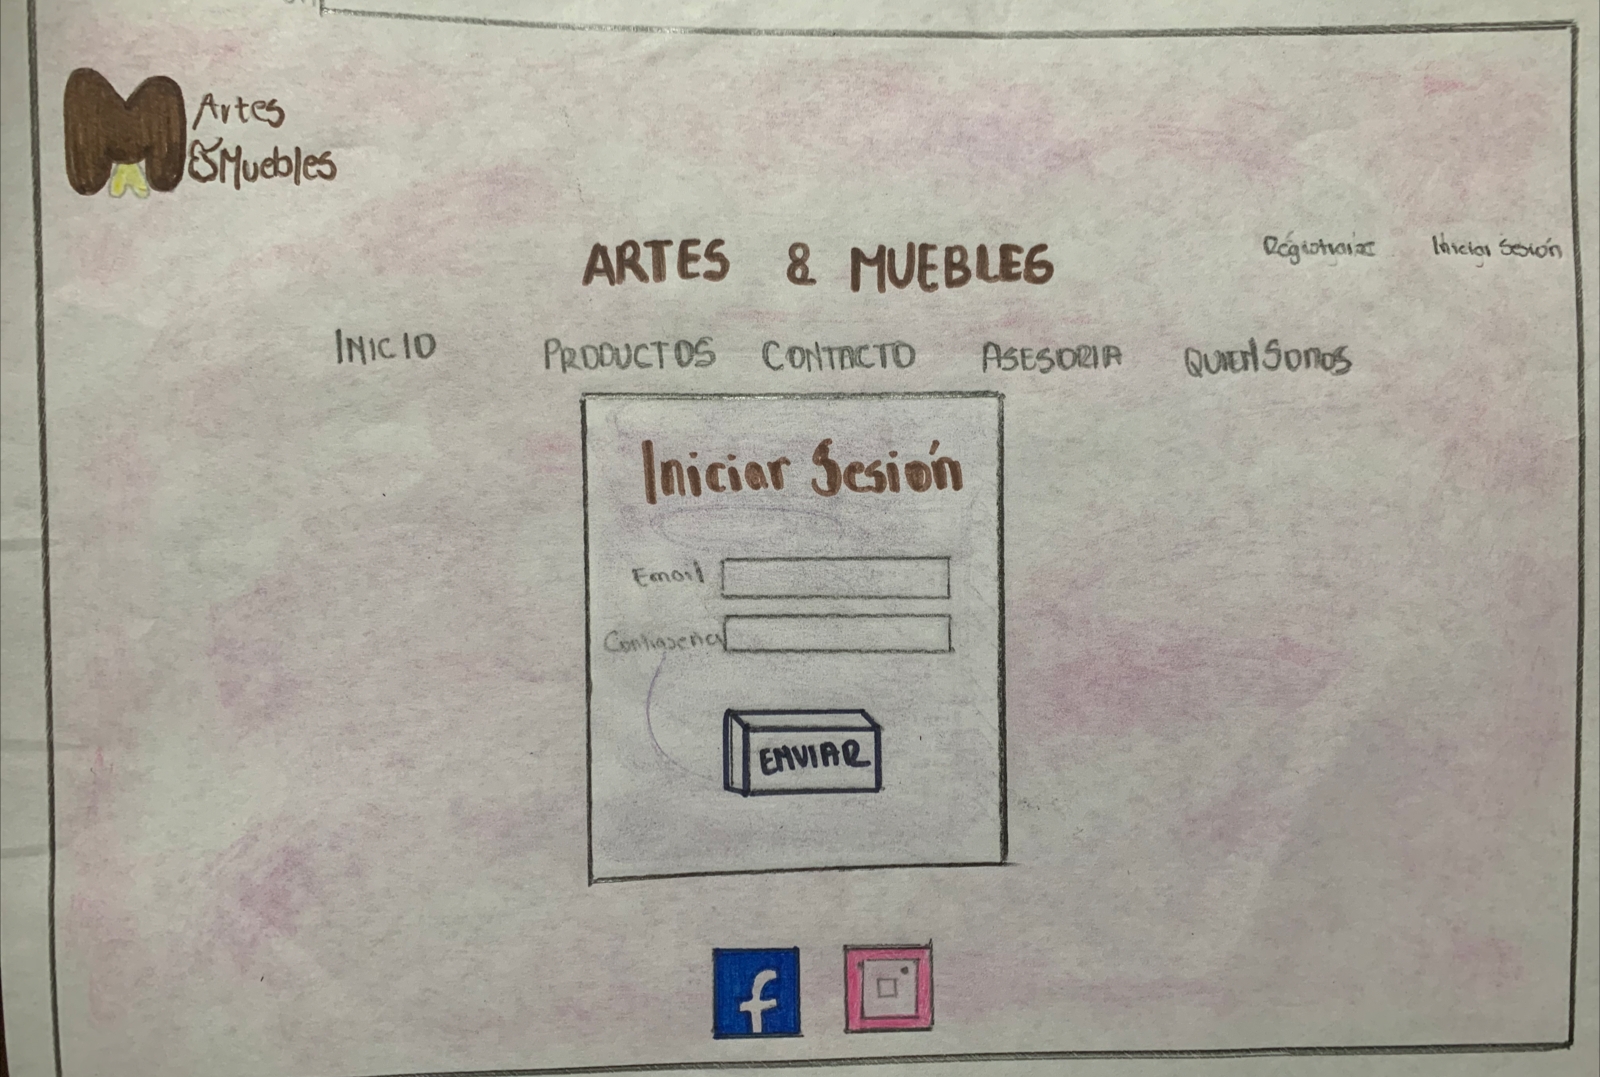 Artes
& Muebles
ARTES & MUEBLES
Registrarse Iniciar Sesión
INICIO PRODUCTOS CONTACTO ASESORIA QUIEN SOMOS
Iniciar Sesión
Email
Contraseña
ENVIAR
f